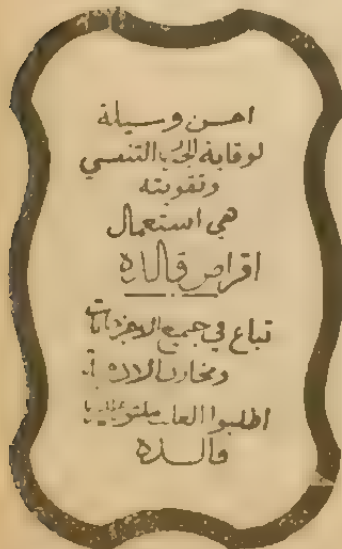 احسن وسيلة
لوقاية الجهاز التنفسي
وتقويته
هي استعمال
اقراص فالده
تباع في جميع الاجزاخانات
ومخازن الادوية
اطلبوا العلب مكتوب عليها
فالده